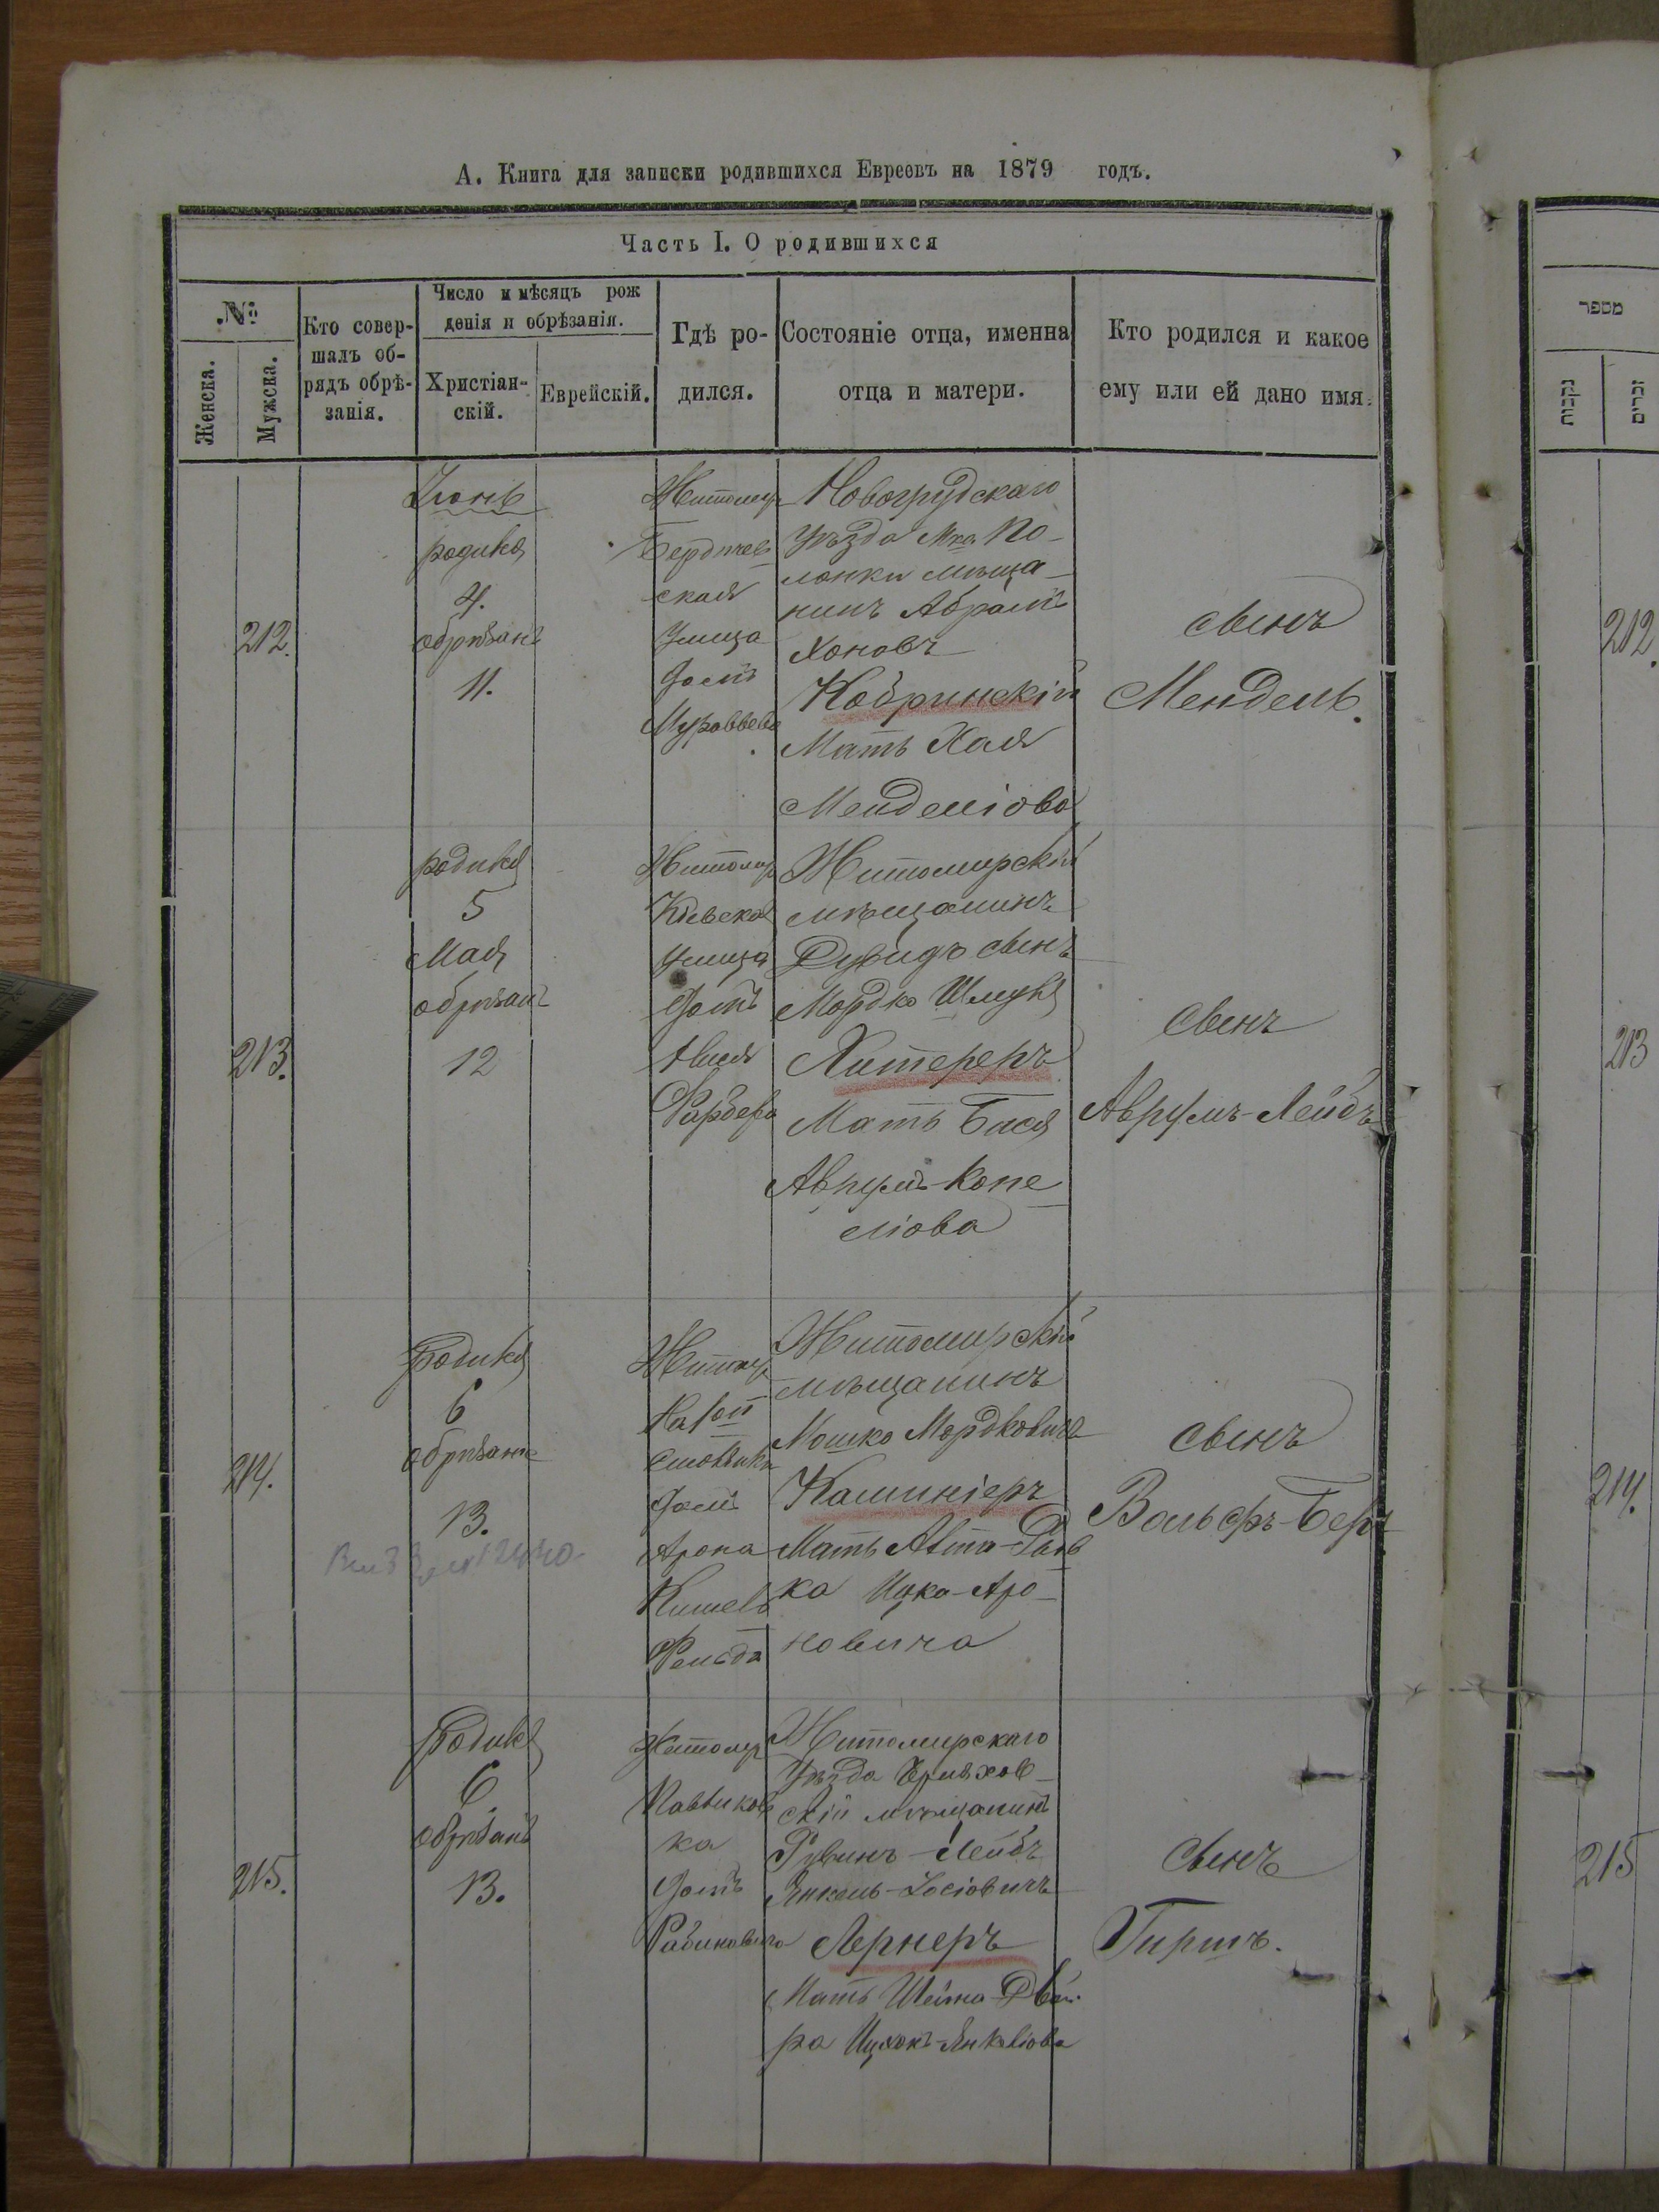 А. Книга для записки родившихся Евреевъ на 1879 годъ.
Часть I. О родившихся
№
Женска.
Мужска.
Кто совер-
шалъ об-
рядъ обрѣ-
занія.
Число и мѣсяцъ рож
денія и обрѣзанія.
Христіан-
скій.
Еврейскій.
Гдѣ ро-
дился.
Состояніе отца, именна
отца и матери.
Кто родился и какое
ему или ей дано имя.
212.
Іюнь
родился
4.
обрѣзанъ
11.
Житомир
Бердичев
ская
Улица
домъ
Муравьева
Новогрудскаго
Уѣзда Мка По-
лонки мѣща-
нинъ Абрамъ
Хоновъ
Кобринскій
Мать Хая
Менделіова
сынъ
Мендель.
213.
родился
5
Мая
обрѣзанъ
12
Житомир
Кіевская
Улица
домъ
Фарбера
Житомирскій
мѣщанинъ
Дувидъ сынъ
Мордко Шмуля
Хитереръ
Мать Бася
Аврумъ-Копе
ліова
сынъ
Аврумъ-Лейбъ
214.
Родился
6
обрѣзанъ
13.
Житомир
домъ
Арона
Житомирскій
мѣщанинъ
Мошко Мордковичъ
Каминіеръ
Мать
ка Ицко-Аро-
новича
сынъ
Вольфъ-Беръ
215.
Родился
6
обрѣзанъ
13.
Житомир
Павликов
ка
домъ
Рабиновича
Житомирскаго
Уѣзда Черняхов-
скій мѣщанинъ
Рувинъ-Лейбъ
Янкель-Іосіовичъ
Лернеръ
Мать Шейна-Двой
ра Ицхокъ-Янкеліова
сынъ
Гиршъ.
מספר
נקבות
זכרים
212.
213
214.
215